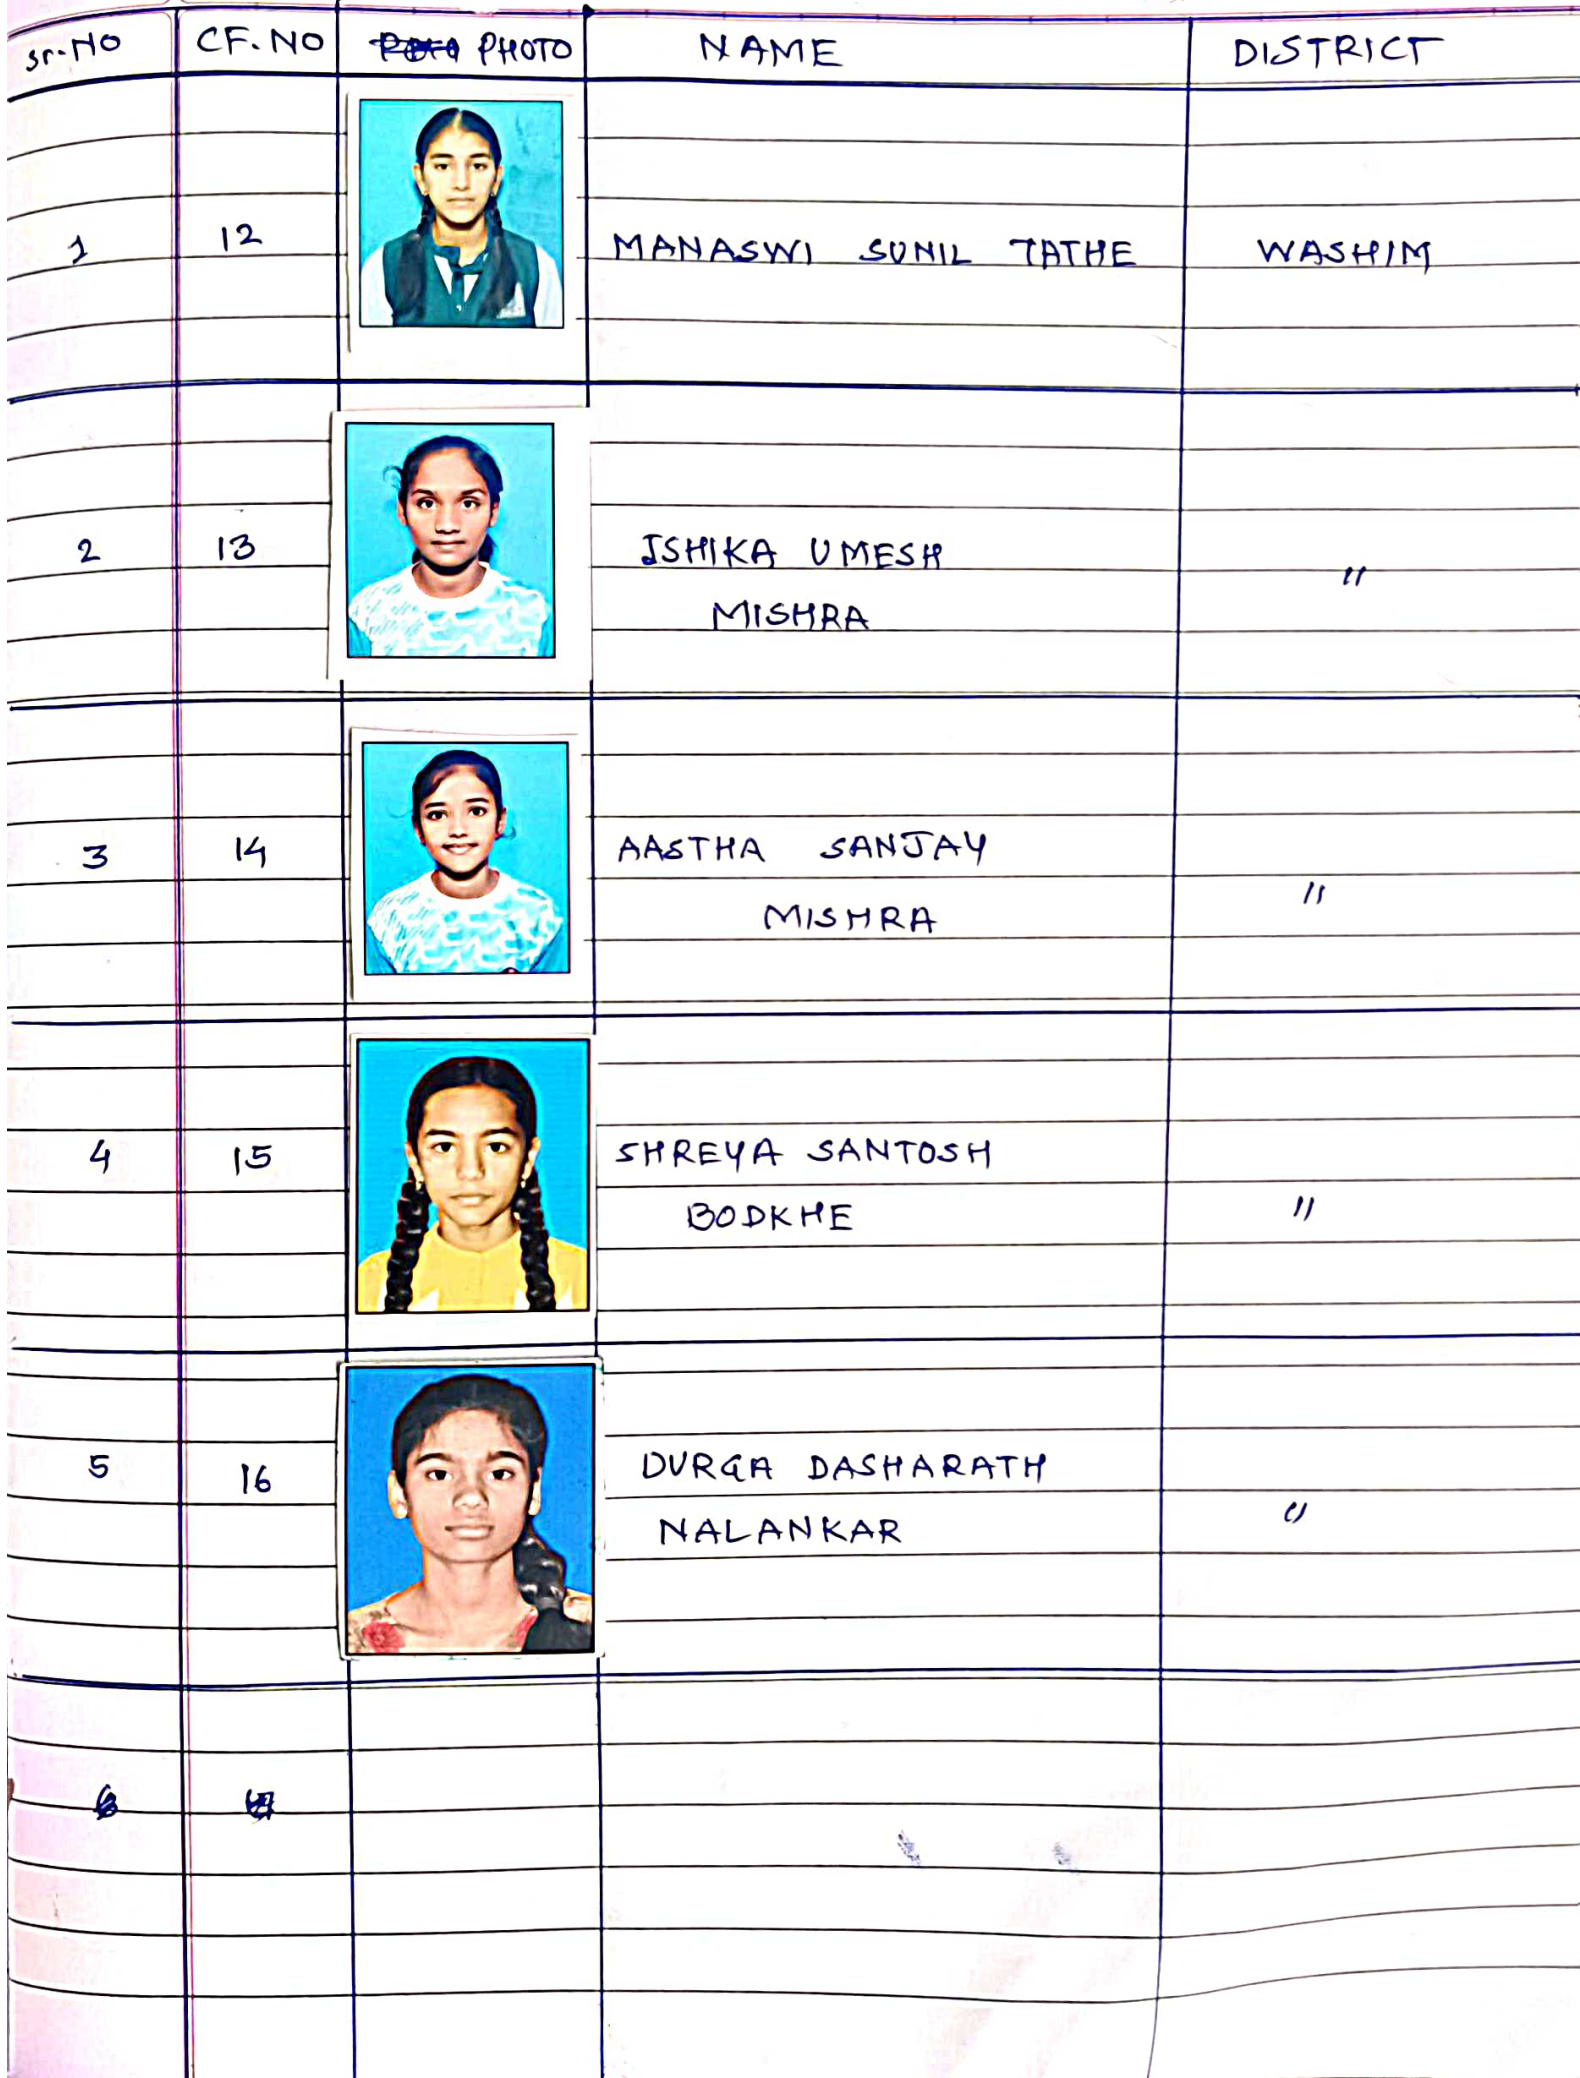 Sr. NO CF. NO PHOTO NAME DISTRICT
1 12 MANASWI SUNIL TATHE WASHIM
2 13 ISHIKA UMESH
MISHRA "
3 14 AASTHA SANJAY
MISHRA "
4 15 SHREYA SANTOSH
BODKHE "
5 16 DURGA DASHARATH
NALANKAR "